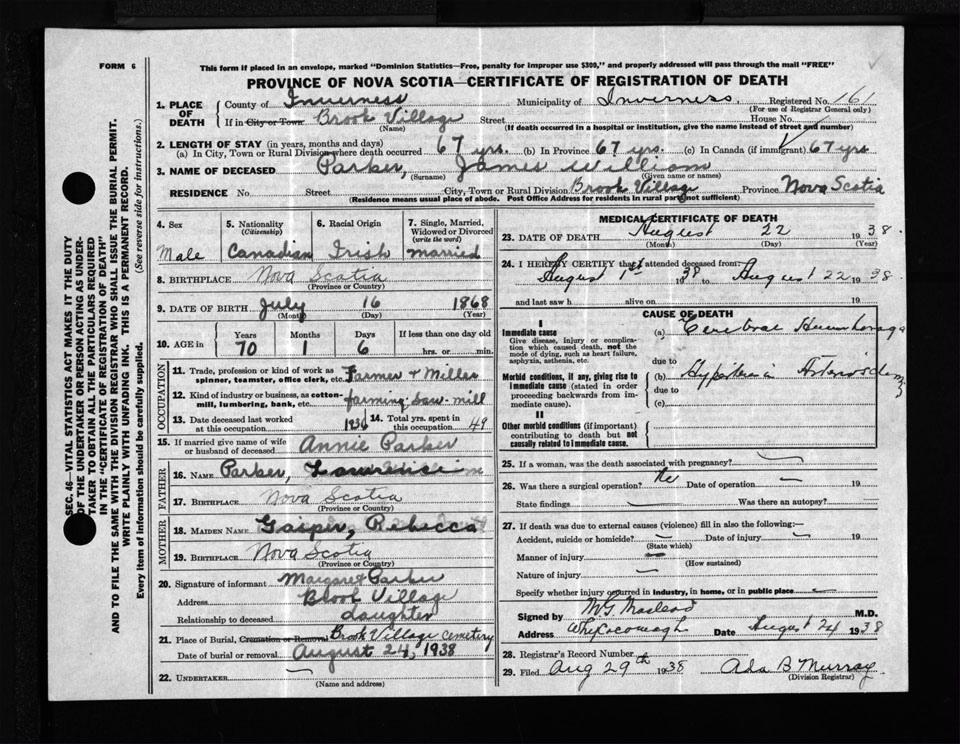 FORM 6
This form if placed in an envelope, marked "Dominion Statistics—Free, penalty for improper use $300," and properly addressed will pass through the mail "FREE"
PROVINCE OF NOVA SCOTIA—CERTIFICATE OF REGISTRATION OF DEATH
1. PLACE OF DEATH County of Inverness Municipality of Inverness. Registered No. 161
(For use of Registrar General only)
If in City or Town Brook Village Street House No.
(Name) (If death occurred in a hospital or institution, give the name instead of street and number)
2. LENGTH OF STAY (in years, months and days)
(a) In City, Town or Rural Division where death occurred 67 yrs. (b) In Province 67 yrs. (c) In Canada (if immigrant) 67 yrs
3. NAME OF DECEASED Parker, James William
(Surname) (Given name or names)
RESIDENCE No. Street City, Town or Rural Division Brook Village Province Nova Scotia
(Residence means usual place of abode. Post Office Address for residents in rural part not sufficient)
4. Sex Male
5. Nationality (Citizenship) Canadian
6. Racial Origin Irish
7. Single, Married, Widowed or Divorced (write the word) married
8. BIRTHPLACE Nova Scotia
(Province or Country)
9. DATE OF BIRTH July 16 1868
(Month) (Day) (Year)
10. AGE in Years 70 Months 1 Days 6 If less than one day old hrs. or min.
OCCUPATION
11. Trade, profession or kind of work as spinner, teamster, office clerk, etc. Farmer + Miller
12. Kind of industry or business, as cotton-mill, lumbering, bank, etc. farming, saw-mill
13. Date deceased last worked at this occupation 1936
14. Total yrs. spent in this occupation 49
15. If married give name of wife or husband of deceased Annie Parker
FATHER
16. NAME Parker,
17. BIRTHPLACE Nova Scotia
(Province or Country)
MOTHER
18. MAIDEN NAME Gasper, Rebecca
19. BIRTHPLACE Nova Scotia
(Province or Country)
20. Signature of informant Margaret Parker
Address Brook Village
Relationship to deceased daughter
21. Place of Burial, Cremation or Removal Brook Village cemetery
Date of burial or removal August 24, 1938
22. UNDERTAKER
(Name and address)
MEDICAL CERTIFICATE OF DEATH
23. DATE OF DEATH August 22 1938.
(Month) (Day) (Year)
24. I HEREBY CERTIFY that I attended deceased from:
August 1st 1938 to August 22 1938.
and last saw h alive on 19
CAUSE OF DEATH
I
Immediate cause (a) Cerebral Haemhoraga
Give disease, injury or complication which caused death, not the mode of dying, such as heart failure, asphyxia, asthenia, etc.
due to
Morbid conditions, if any, giving rise to immediate cause (stated in order proceeding backwards from immediate cause). (b)
due to
(c)
II
Other morbid conditions (if important) contributing to death but not causally related to immediate cause.
25. If a woman, was the death associated with pregnancy?
26. Was there a surgical operation? No Date of operation 19
State findings Was there an autopsy?
27. If death was due to external causes (violence) fill in also the following:—
Accident, suicide or homicide? Date of injury 19
(State which)
Manner of injury
(How sustained)
Nature of injury
Specify whether injury occurred in industry, in home, or in public place
Signed by M.D.
Address Whycocomagh Date August 24 1938
28. Registrar's Record Number
29. Filed Aug 29th 1938 Ada B Murray
(Division Registrar)
SEC. 46—VITAL STATISTICS ACT MAKES IT THE DUTY
OF THE UNDERTAKER OR PERSON ACTING AS UNDERTAKER TO OBTAIN ALL THE PARTICULARS REQUIRED
IN THE "CERTIFICATE OF REGISTRATION OF DEATH"
AND TO FILE THE SAME WITH THE DIVISION REGISTRAR WHO SHALL ISSUE THE BURIAL PERMIT.
WRITE PLAINLY WITH UNFADING INK. THIS IS A PERMANENT RECORD.
Every item of information should be carefully supplied. (See reverse side for instructions.)